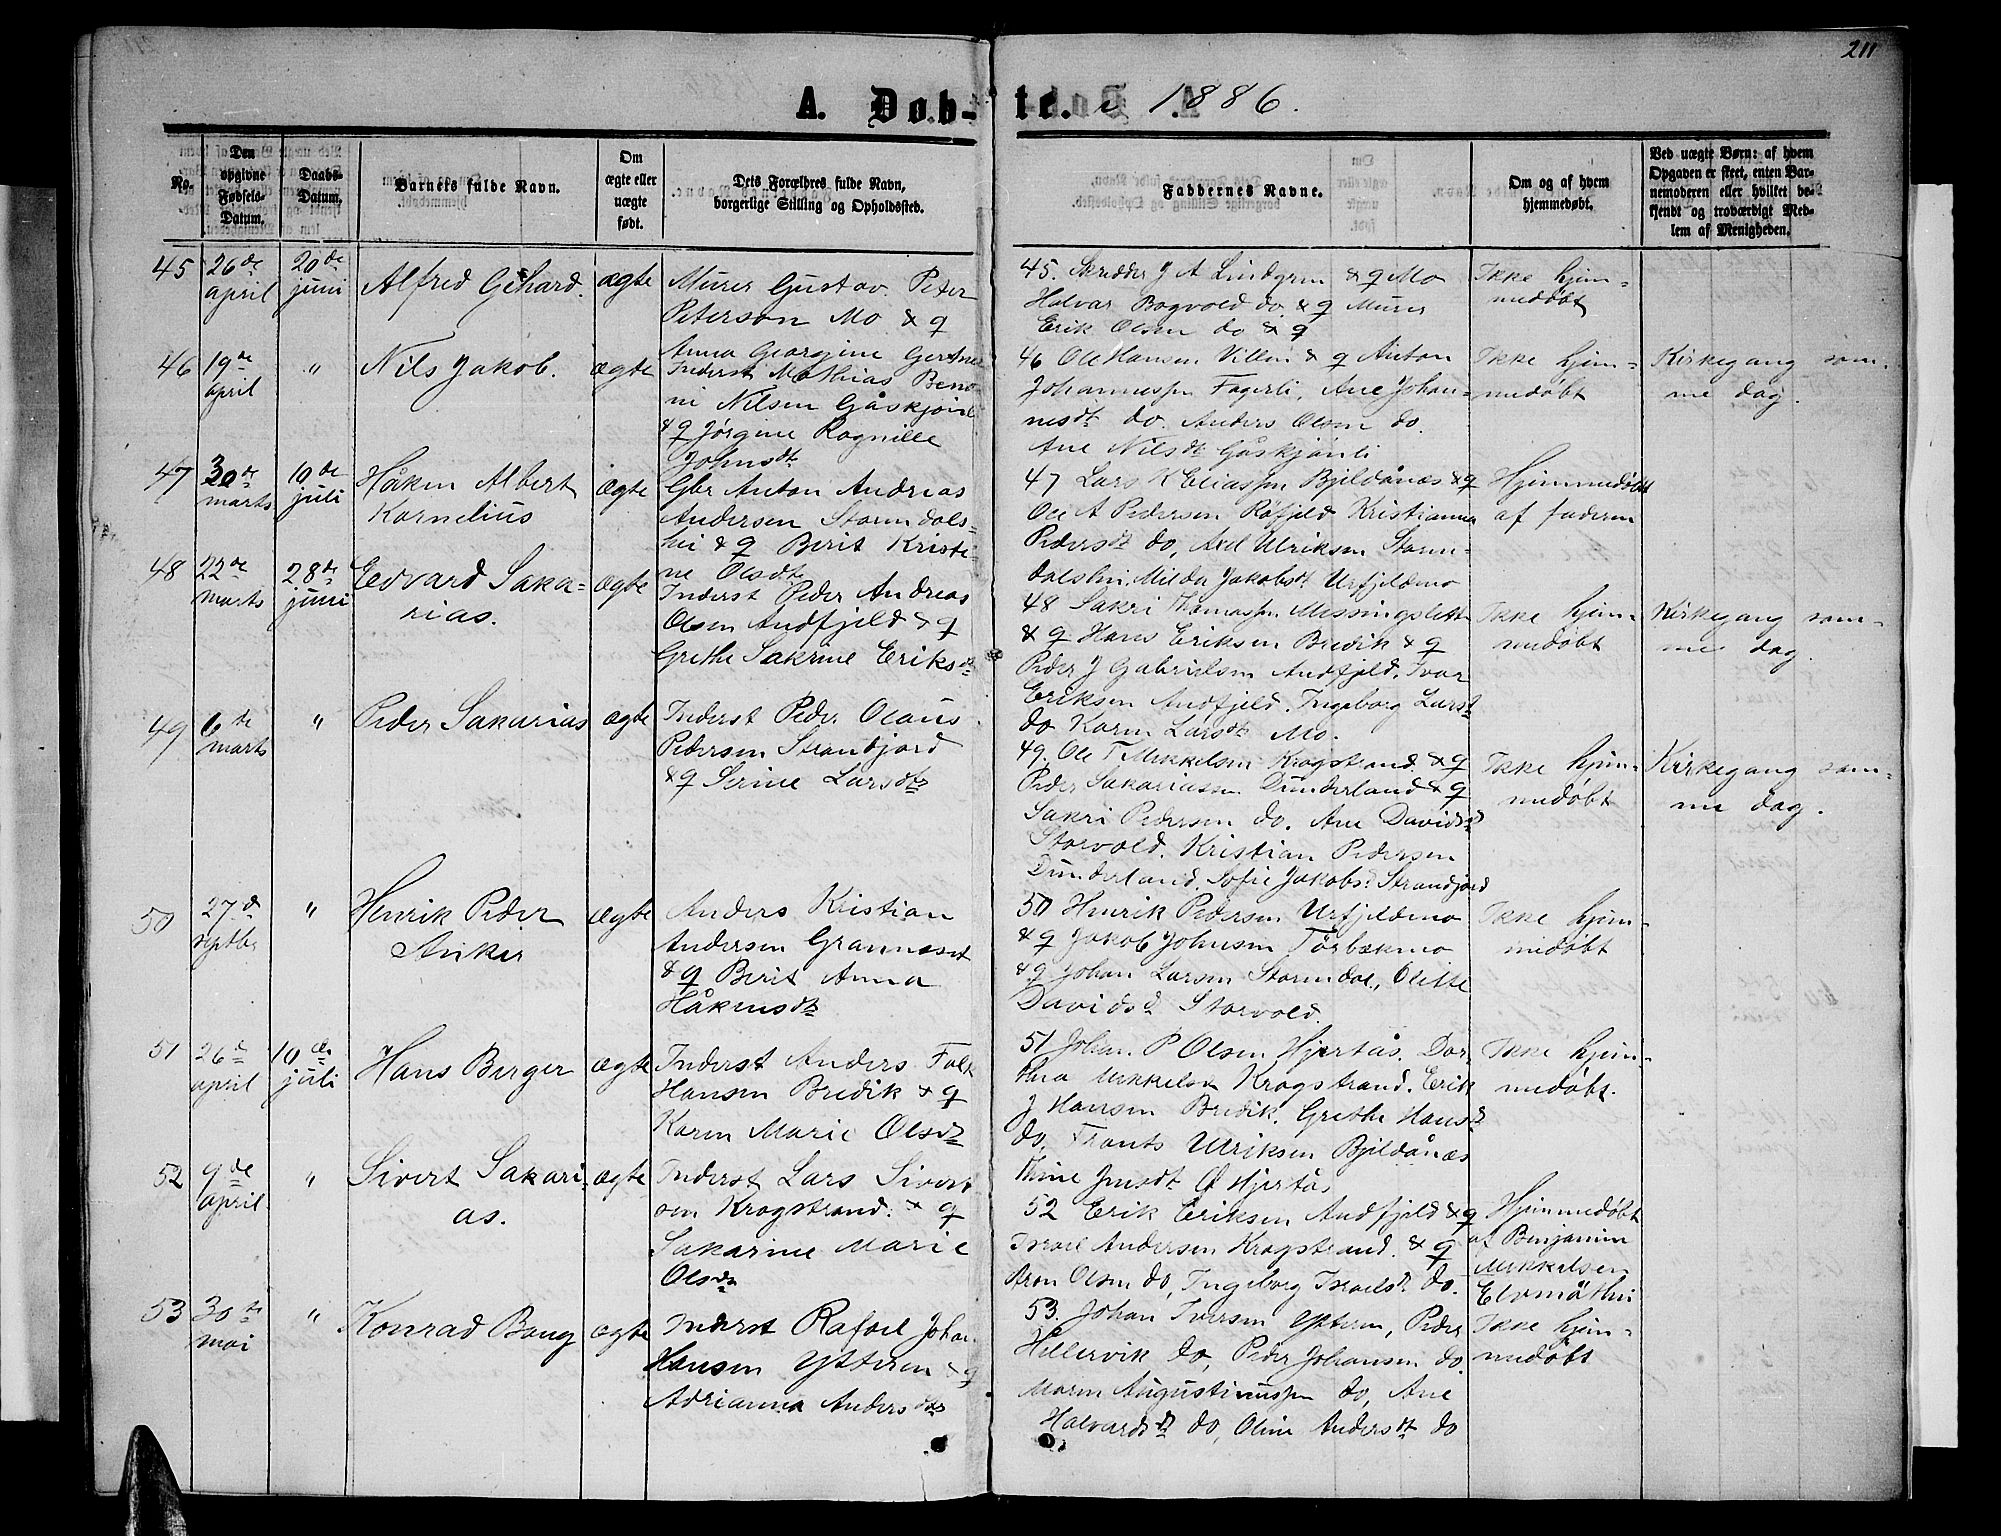 211
A. Døb-
te. i 1886.
No.
Den opgivne Fødsels-Datum.
Daabs-Datum.
Barnets fulde Navn.
Om ægte eller uægte født.
Dets Forældres fulde Navn, borgerlige Stilling og Opholdssted.
Faddernes Navne.
Om og af hvem hjemmedøbt.
Ved uægte Børn: af hvem Opgaven er skeet, enten Barnemoderen eller hvilket bekjendt og troværdigt Medlem af Menigheden.
45 26de april 20de juni Alfred Gehard. ægte
Murer Gustav Peter
Peterson Mo & q
Anna Georgine Gertner
45. Skredder J A Lindgren & q Mo
Halvar Bogvold do. & q Murer
Erik Olsen do & q
Ikke hjem-
medøbt
46 19de april " Nils Jakob. ægte
Inderst Mathias Beno-
ni Nilsen Gåskjønli
& q Jørgine Ragnille
Johnsdt
46 Ole Hansen Villen & q Anton
Johannessen Fagerli, Ane Johan-
nesdt do. Anders Olsen do.
Ane Nilsdt Gåskjønli
Ikke hjem-
medøbt
Kirkegang sam-
me dag.
47 30de marts 10de juli Håken Albert
Kornelius ægte
Gbr Anton Andreas
Andersen Stormdals-
hei & q Berit Kristi-
ne Olsdt
47 Lars K Eliassen Bjeldånæs & q
Ole A Pedersen Røfjeld Kristianna
Pedersdt do, Axel Ulriksen Storm-
dalshei, Milda Jakobsdt Urfjeldmo
Hjemmedøbt
af faderen
48 22de marts 28de juni Edvard Saka-
rias. ægte
Inderst Peder Andreas
Olsen Andfjeld & q
Grethe Sakrine Eriksdt
48 Sakri Thomassen Messingslett
& q Hans Eriksen Bredik & q
Peder J Gabrielsen Andfjeld. Ivar
Eriksen Andfjeld. Ingeborg Larsdt
do Karen Larsdt Mo.
Ikke hjem-
medøbt
Kirkegang sam-
me dag.
49 6te marts " Peder Sakarias ægte
Inderst Peder Olaus
Pedersen Strandjord
& q Serine Larsdt
49. Ole T Mikkelsen Krogstrand. & q
Peder Sakariassen Dunderland & q
Sakri Pedersen do. Ane Davidsd
Storvold. Kristian Pedersen
Dunderland. Sofie Jakobsd Strandjord
Ikke hjem-
medøbt
Kirkegang sam-
me dag.
50 27de septbr " Henrik Peder
Anker ægte
Anders Kristian
Andersen Granneset
& q Berit Anna
Håkensdt
50 Henrik Pedersen Urfjeldmo
& q Jakob Johnsen Tørbækmo
& q Johan Larsen Stormdal, Olette
Davidsd Storvold.
Ikke hjem-
medøbt
51 26de april 10de juli Hans Berger ægte
Inderst Anders Falk
Hansen Bredik & q
Karen Marie Olsdt
51 Johan P Olsen Hjertås. Dor-
thea Mikkelsd Krogstrand. Erik
J Hansen Bredik. Grethe Hansd
do, Frants Ulriksen Bjeldånæs
Ikke hjem-
medøbt.
52 9de april " Sivert Sakari-
as. ægte
Inderst Lars Sivert
sen Krogstrand. & q
Sakarine Marie
Olsdt
52 Erik Eriksen Andfjeld & q
Israel Andersen Krogstrand. & q
Aron Olsen do, Ingeborg Israelsd do.
Hjemmedøbt
af Benjamin
Mikkelsen
53 30te mai " Konrad Bang ægte
Inderst Rafael Johan
Hansen Ytteren & q
Adrianna Andersdtr
53. Johan Iversen Ytteren, Peder
Hellervik do, Peder Johansen do
Maren Augustinussen do, Ane
Halvardsdt do, Oline Andersdt do
Ikke hjem-
medøbt